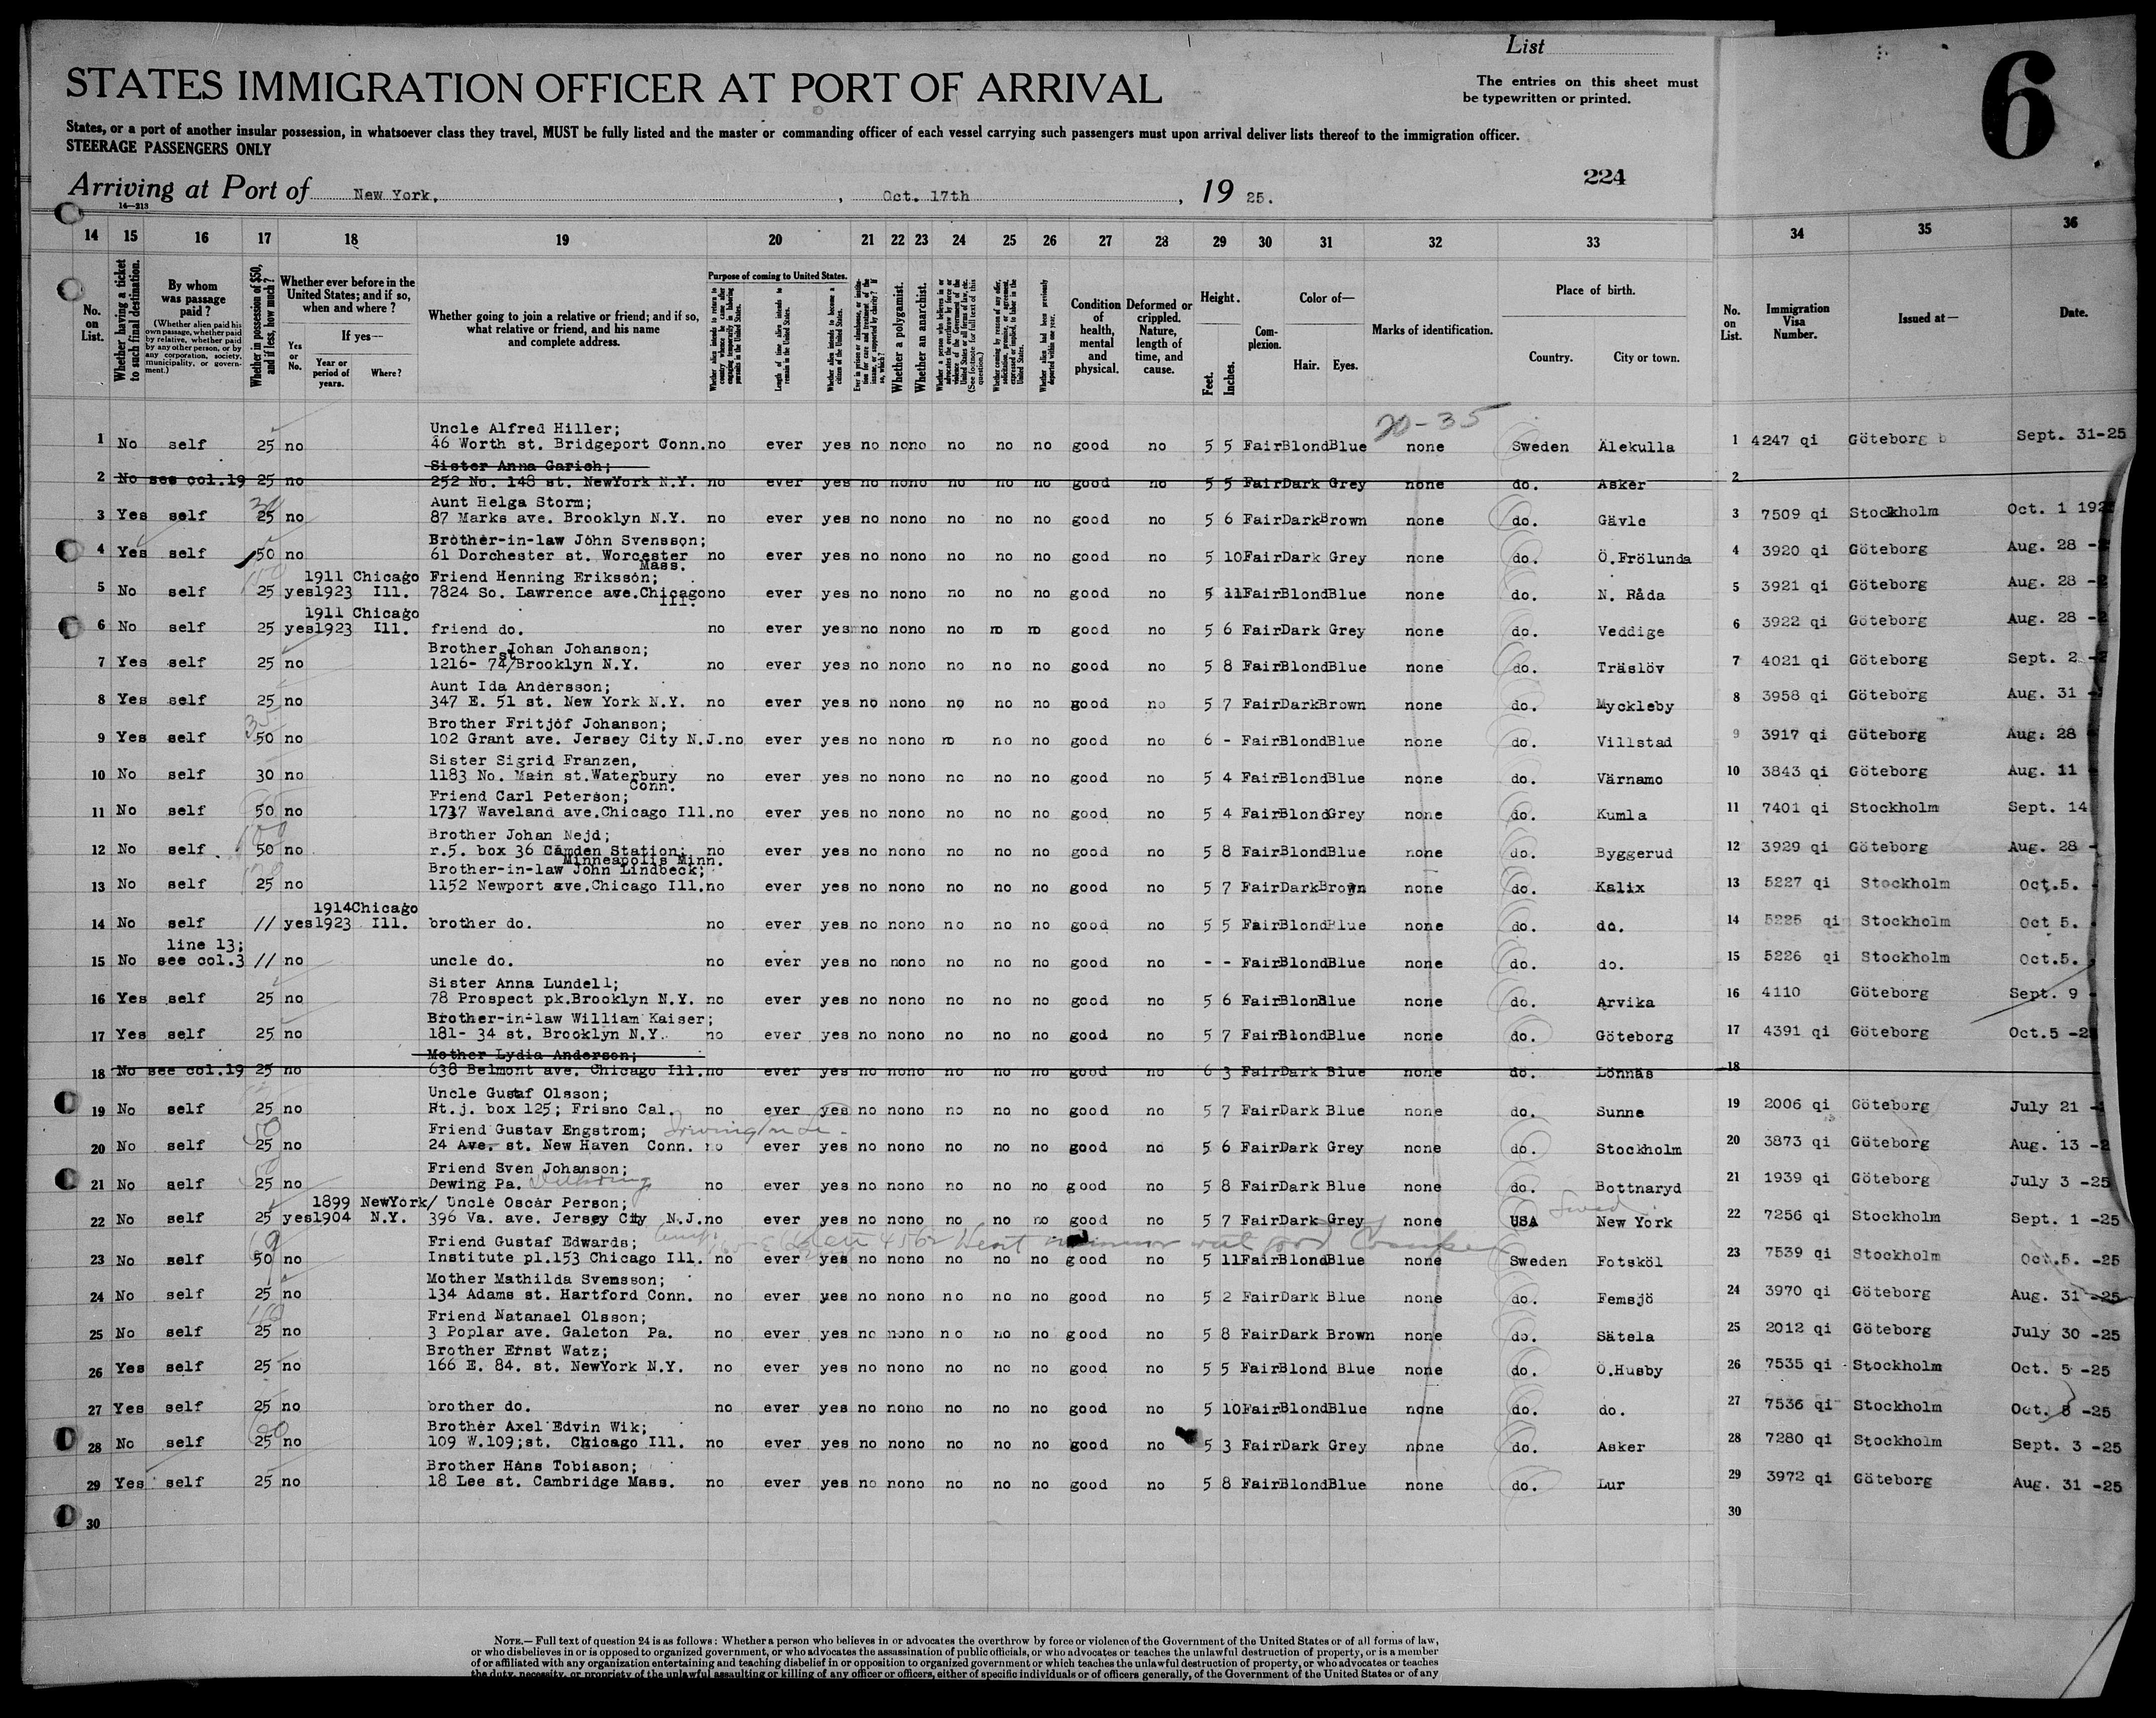 List
STATES IMMIGRATION OFFICER AT PORT OF ARRIVAL
The entries on this sheet must
be typewritten or printed.
6
States, or a port of another insular possession, in whatsoever class they travel, MUST be fully listed and the master or commanding officer of each vessel carrying such passengers must upon arrival deliver lists thereof to the immigration officer.
STEERAGE PASSENGERS ONLY
224
Arriving at Port of New York, , Oct. 17th , 19 25.
14—213
14 15 16 17 18 19 20 21 22 23 24 25 26 27 28 29 30 31 32 33 34 35 36
No. on List.
Whether having a ticket to such final destination.
By whom was passage paid?
(Whether alien paid his own passage, whether paid by relative, whether paid by any other person, or by any corporation, society, municipality, or government.)
Whether in possession of $50, and if less, how much?
Whether ever before in the United States; and if so, when and where?
Yes or No.
If yes—
Year or period of years.
Where?
Whether going to join a relative or friend; and if so, what relative or friend, and his name and complete address.
Purpose of coming to United States.
Length of time alien intends to remain in the United States.
Whether alien intends to become a citizen of the United States.
Whether a polygamist.
Whether an anarchist.
Condition of health, mental and physical.
Deformed or crippled. Nature, length of time, and cause.
Height.
Feet. Inches.
Complexion.
Color of—
Hair. Eyes.
Marks of identification.
Place of birth.
Country. City or town.
No. on List.
Immigration Visa Number.
Issued at—
Date.
20-35
Uncle Alfred Hiller;
1 No self 25 no 46 Worth st. Bridgeport Conn. no ever yes no nono no no no good no 5 5 Fair Blond Blue none Sweden Älekulla 1 4247 qi Göteborg Sept. 31-25
Sister Anna Garich;
2 No see col.19 25 no 252 No. 148 st. NewYork N.Y. no ever yes no nono no no no good no 5 5 Fair Dark Grey none do. Asker 2
Aunt Helga Storm;
3 Yes self 25 no 87 Marks ave. Brooklyn N.Y. no ever yes no nono no no no good no 5 6 Fair Dark Brown none do. Gävle 3 7509 qi Stockholm Oct. 1
Brother-in-law John Svensson;
4 Yes self 50 no 61 Dorchester st. Worcester no ever yes no nono no no no good no 5 10 Fair Dark Grey none do. Ö.Frölunda 4 3920 qi Göteborg Aug. 28
Mass.
1911 Chicago Friend Henning Eriksson;
5 No self 25 yes 1923 Ill. 7824 So. Lawrence ave. Chicago no ever yes no nono no no no good no 5 11 Fair Blond Blue none do. N. Råda 5 3921 qi Göteborg Aug. 28
Ill.
1911 Chicago
6 No self 25 yes 1923 Ill. friend do. no ever yes no nono no no no good no 5 6 Fair Dark Grey none do. Veddige 6 3922 qi Göteborg Aug. 28
Brother Johan Johanson;
7 Yes self 25 no 1216- 74 st/Brooklyn N.Y. no ever yes no nono no no no good no 5 8 Fair Blond Blue none do. Träslöv 7 4021 qi Göteborg Sept. 2
Aunt Ida Andersson;
8 Yes self 25 no 347 E. 51 st. New York N.Y. no ever yes no nono no no no good no 5 7 Fair Dark Brown none do. Myckleby 8 3958 qi Göteborg Aug. 31
Brother Fritjof Johanson;
9 Yes self 50 no 102 Grant ave. Jersey City N.J. no ever yes no nono no no no good no 6 - Fair Blond Blue none do. Villstad 9 3917 qi Göteborg Aug. 28
Sister Sigrid Franzen,
10 No self 30 no 1183 No. Main st. Waterbury no ever yes no nono no no no good no 5 4 Fair Blond Blue none do. Värnamo 10 3843 qi Göteborg Aug. 11
Conn.
Friend Carl Peterson;
11 No self 50 no 1737 Waveland ave. Chicago Ill. no ever yes no nono no no no good no 5 4 Fair Blond Grey none do. Kumla 11 7401 qi Stockholm Sept. 14
Brother Johan Nejd;
12 No self 50 no r.5. box 36 Camden Station; no ever yes no nono no no no good no 5 8 Fair Blond Blue none do. Byggerud 12 3929 qi Göteborg Aug. 28
Minneapolis Minn.
Brother-in-law John Lindbeck;
13 No self 25 no 1152 Newport ave. Chicago Ill. no ever yes no nono no no no good no 5 7 Fair Dark Brown none do. Kalix 13 5227 qi Stockholm Oct.5.
1914 Chicago
14 No self // yes 1923 Ill. brother do. no ever yes no nono no no no good no 5 5 Fair Blond Blue none do. do. 14 5225 qi Stockholm Oct 5.
line 13;
15 No see col.3 // no uncle do. no ever yes no nono no no no good no - - Fair Blond Blue none do. do. 15 5226 qi Stockholm Oct.5.
Sister Anna Lundell;
16 Yes self 25 no 78 Prospect pk. Brooklyn N.Y. no ever yes no nono no no no good no 5 6 Fair Blond Blue none do. Arvika 16 4110 Göteborg Sept. 9
Brother-in-law William Kaiser;
17 Yes self 25 no 181- 34 st. Brooklyn N.Y. no ever yes no nono no no no good no 5 7 Fair Blond Blue none do. Göteborg 17 4391 qi Göteborg Oct.5
Mother Lydia Anderson;
18 No see col.19 25 no 638 Belmont ave. Chicago Ill. no ever yes no nono no no no good no 6 3 Fair Dark Blue none do. Lönnäs 18
Uncle Gustaf Olsson;
19 No self 25 no Rt.j. box 125; Frisno Cal. no ever yes no nono no no no good no 5 7 Fair Dark Blue none do. Sunne 19 2006 qi Göteborg July 21
Friend Gustav Engstrom;
20 No self 25 no 24 Ave. st. New Haven Conn. no ever yes no nono no no no good no 5 6 Fair Dark Grey none do. Stockholm 20 3873 qi Göteborg Aug. 13
Friend Sven Johanson;
21 No self 25 no Dewing Pa. no ever yes no nono no no no good no 5 8 Fair Dark Blue none do. Bottnaryd 21 1939 qi Göteborg July 3 -25
1899 NewYork/ Uncle Oscar Person;
22 No self 25 yes 1904 N.Y. 396 Va. ave. Jersey City N.J. no ever yes no nono no no no good no 5 7 Fair Dark Grey none USA New York 22 7256 qi Stockholm Sept. 1 -25
Friend Gustaf Edwards;
23 No self 50 no Institute pl.153 Chicago Ill. no ever yes no nono no no no good no 5 11 Fair Blond Blue none Sweden Fotsköl 23 7539 qi Stockholm Oct.5. -25
Mother Mathilda Svensson;
24 No self 25 no 134 Adams st. Hartford Conn. no ever yes no nono no no no good no 5 2 Fair Dark Blue none do. Femsjö 24 3970 qi Göteborg Aug. 31 -25
Friend Natanael Olsson;
25 No self 25 no 3 Poplar ave. Galeton Pa. no ever yes no nono no no no good no 5 8 Fair Dark Brown none do. Sätela 25 2012 qi Göteborg July 30 -25
Brother Ernst Watz;
26 Yes self 25 no 166 E. 84. st. NewYork N.Y. no ever yes no nono no no no good no 5 5 Fair Blond Blue none do. Ö.Husby 26 7535 qi Stockholm Oct. 5 -25
27 Yes self 25 no brother do. no ever yes no nono no no no good no 5 10 Fair Blond Blue none do. do. 27 7536 qi Stockholm Oct. 8 -25
Brother Axel Edvin Wik;
28 No self 25 no 109 W.109;st. Chicago Ill. no ever yes no nono no no no good no 5 3 Fair Dark Grey none do. Asker 28 7280 qi Stockholm Sept. 3 -25
Brother Hans Tobiason;
29 Yes self 25 no 18 Lee st. Cambridge Mass. no ever yes no nono no no no good no 5 8 Fair Blond Blue none do. Lur 29 3972 qi Göteborg Aug. 31 -25
30 30
NOTE.—Full text of question 24 is as follows: Whether a person who believes in or advocates the overthrow by force or violence of the Government of the United States or of all forms of law,
or who disbelieves in or is opposed to organized government, or who advocates the assassination of public officials, or who advocates or teaches the unlawful destruction of property, or is a member
of or affiliated with any organization entertaining and teaching disbelief in or opposition to organized government or which teaches the unlawful destruction of property, or who advocates or teaches
the duty, necessity, or propriety of the unlawful assaulting or killing of any officer or officers, either of specific individuals or of officers generally, of the Government of the United States or of any